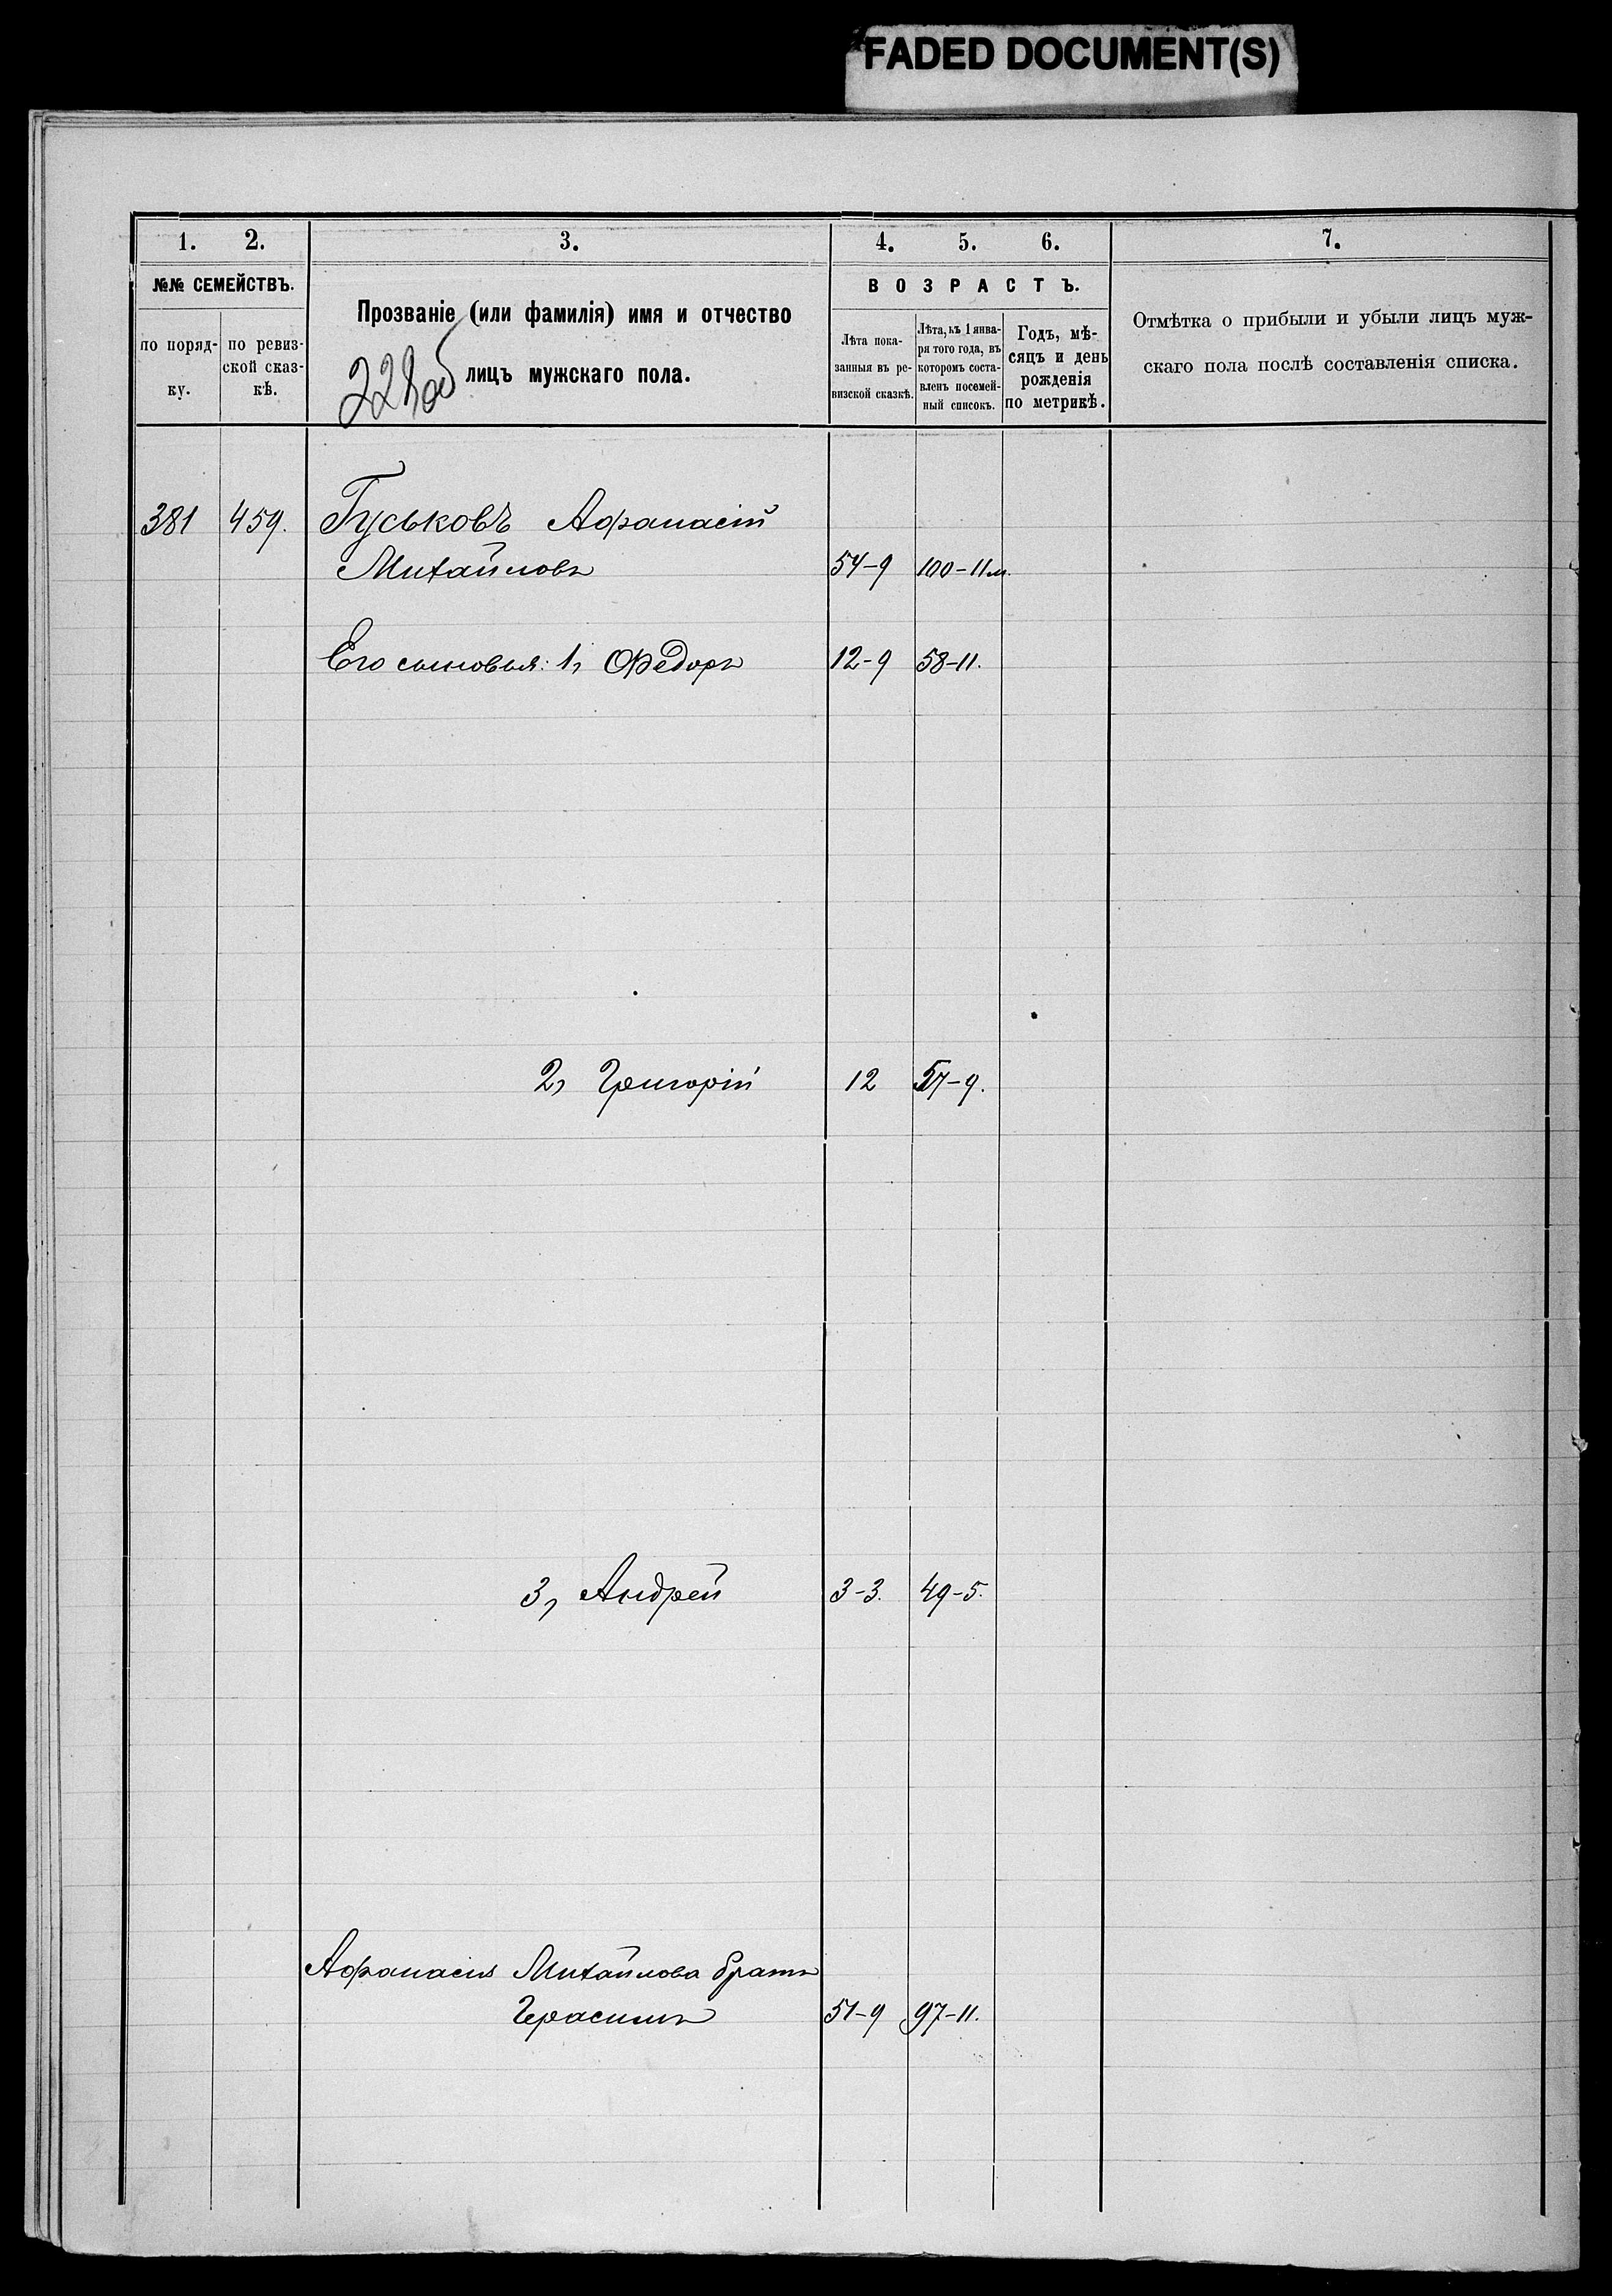 FADED DOCUMENT(S)
1. 2. 3. 4. 5. 6. 7.
№№ СЕМЕЙСТВЪ.
по поряд-
ку.
по ревиз-
ской сказ-
кѣ.
Прозваніе (или фамилія) имя и отчество
лицъ мужскаго пола.
228 об
ВОЗРАСТЪ.
Лѣта пока-
занныя въ ре-
визской сказкѣ.
Лѣта, къ 1 янва-
ря того года, въ
которомъ соста-
вленъ посемей-
ный списокъ.
Годъ, мѣ-
сяцъ и день
рожденія
по метрикѣ.
Отмѣтка о прибыли и убыли лицъ муж-
скаго пола послѣ составленія списка.
381 459. Гуськовъ Афанасій
Михайловъ 54-9 100-11м.
Его сыновья: 1, Федоръ 12-9 58-11.
2, Григорій 12 57-9.
3, Андрей 3-3. 49-5.
Афанасія Михайлова братъ
Герасимъ 51-9 97-11.